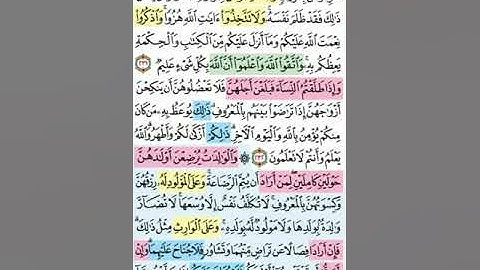 ذَٰلِكَ فَقَدْ ظَلَمَ نَفْسَهُۥ وَلَا تَتَّخِذُوٓا۟ ءَايَٰتِ ٱللَّهِ هُزُوًا وَٱذْكُرُوا۟
نِعْمَتَ ٱللَّهِ عَلَيْكُمْ وَمَآ أَنزَلَ عَلَيْكُم مِّنَ ٱلْكِتَٰبِ وَٱلْحِكْمَةِ
يَعِظُكُم بِهِۦ وَٱتَّقُوا۟ ٱللَّهَ وَٱعْلَمُوٓا۟ أَنَّ ٱللَّهَ بِكُلِّ شَىْءٍ عَلِيمٌ ٢٣١
وَإِذَا طَلَّقْتُمُ ٱلنِّسَآءَ فَبَلَغْنَ أَجَلَهُنَّ فَلَا تَعْضُلُوهُنَّ أَن يَنكِحْنَ
أَزْوَٰجَهُنَّ إِذَا تَرَٰضَوْا۟ بَيْنَهُم بِٱلْمَعْرُوفِ ذَٰلِكَ يُوعَظُ بِهِۦ مَن كَانَ
مِنكُمْ يُؤْمِنُ بِٱللَّهِ وَٱلْيَوْمِ ٱلْءَاخِرِ ذَٰلِكُمْ أَزْكَىٰ لَكُمْ وَأَطْهَرُ وَٱللَّهُ
يَعْلَمُ وَأَنتُمْ لَا تَعْلَمُونَ ٢٣٢ ۞ وَٱلْوَٰلِدَٰتُ يُرْضِعْنَ أَوْلَٰدَهُنَّ
حَوْلَيْنِ كَامِلَيْنِ لِمَنْ أَرَادَ أَن يُتِمَّ ٱلرَّضَاعَةَ وَعَلَى ٱلْمَوْلُودِ لَهُۥ رِزْقُهُنَّ
وَكِسْوَتُهُنَّ بِٱلْمَعْرُوفِ لَا تُكَلَّفُ نَفْسٌ إِلَّا وُسْعَهَا لَا تُضَآرَّ
وَٰلِدَةٌۢ بِوَلَدِهَا وَلَا مَوْلُودٌ لَّهُۥ بِوَلَدِهِۦ وَعَلَى ٱلْوَارِثِ مِثْلُ ذَٰلِكَ
فَإِنْ أَرَادَا فِصَالًا عَن تَرَاضٍ مِّنْهُمَا وَتَشَاوُرٍ فَلَا جُنَاحَ عَلَيْهِمَا وَإِنْ